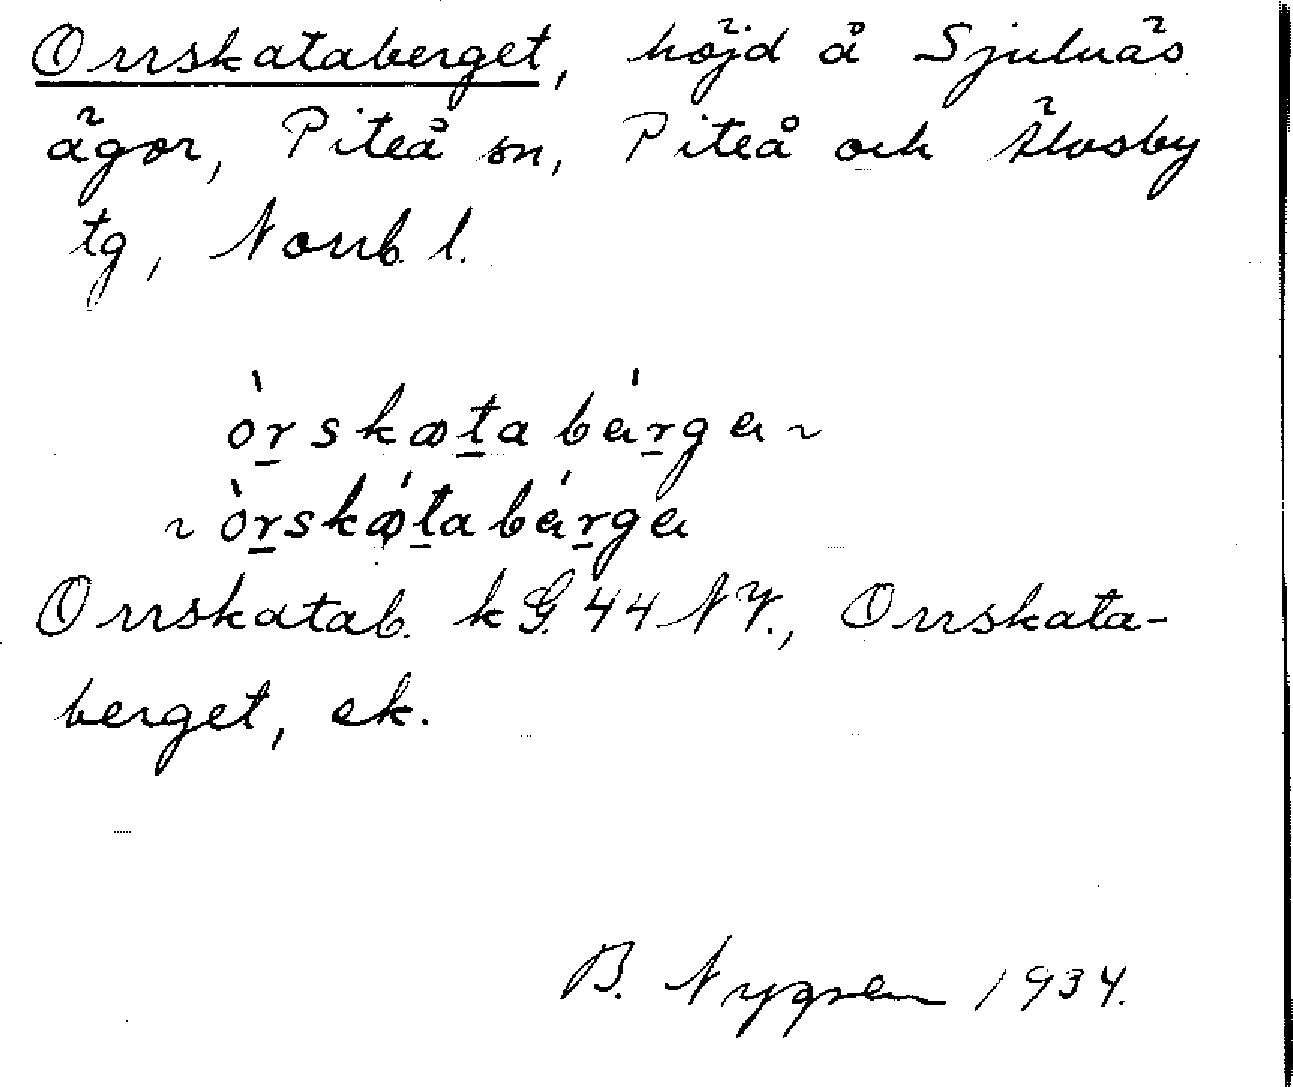 Orrskataberget, höjd å Sjulnäs
ägor, Piteå sn, Piteå och Älvsby
tg, Norrb. l.
Orrskatab. kG. 44 NV., Orrskata-
berget, ek.
B. Nygren 1934.